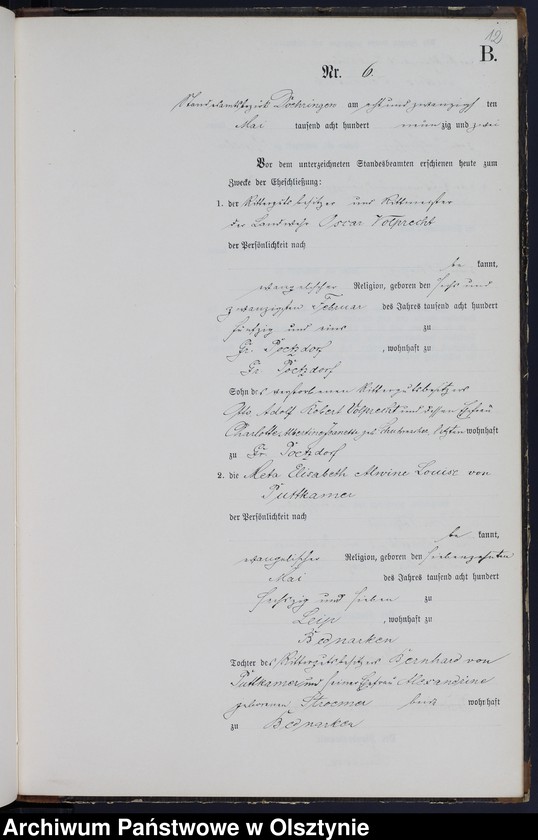 12
B.
Nr. 6.
Standesamtsbezirk Doehringen am acht und zwanzigsten
Mai tausend acht hundert neunzig und zwei
Vor dem unterzeichneten Standesbeamten erschienen heute zum
Zwecke der Eheschließung:
1. der Rittergutsbesitzer und Rittmeister
der Landwehr Oscar Volprecht
der Persönlichkeit nach
bekannt,
evangelischer Religion, geboren den sechs und
zwanzigsten Februar des Jahres tausend acht hundert
fünfzig und eins zu
Gr. Poetzdorf, wohnhaft zu
Gr. Poetzdorf
Sohn des verstorbenen Rittergutsbesitzers
Otto Adolf Robert Volprecht und dessen Ehefrau
Charlotte geb. wohnhaft
zu Gr. Poetzdorf
2. die Meta Elisabeth Alwine Louise von
Puttkamer
der Persönlichkeit nach
bekannt,
evangelischer Religion, geboren den siebenzehnten
Mai des Jahres tausend acht hundert
sechszig und sieben zu
Leip, wohnhaft zu
Bednarken
Tochter des Rittergutsbesitzers Bernhard von
Puttkamer und seiner Ehefrau Alexandrine
geborenen Stroemer beide wohnhaft
zu Bednarken
Archiwum Państwowe w Olsztynie